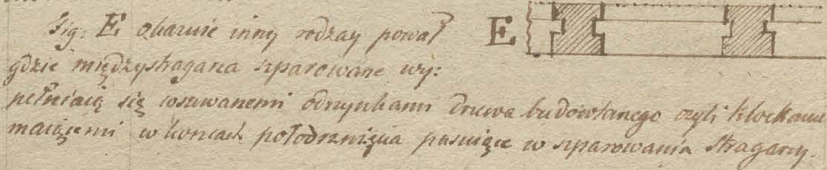 Fig: E. okazuie inny rodzay pował E
gdzie międzystragarza szparowane wy:
pełniaią się wsuwanemi odrzynkami drzewa budowlanego czyli klockami
maiącemi w końcach połodrznięcia pasuiące w szparowania stragarzy.